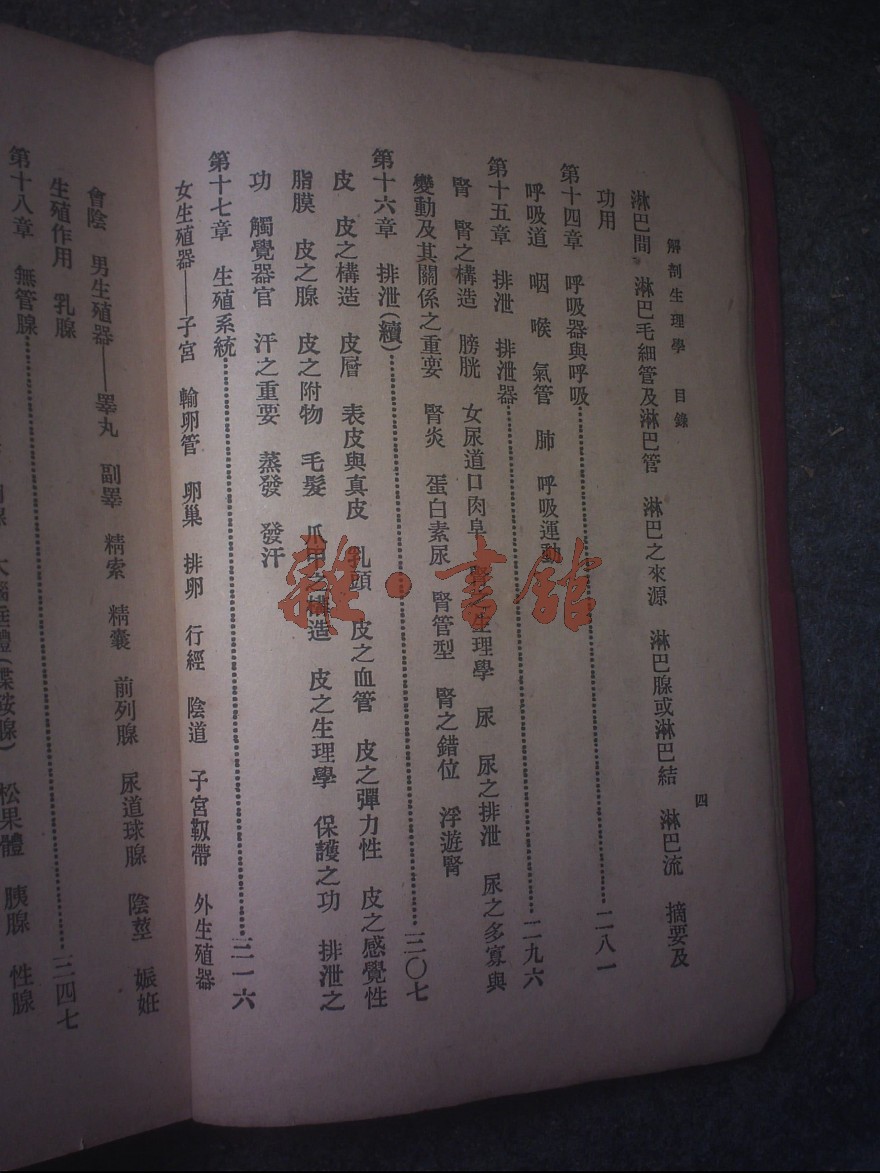 解剖生理學 目錄
四
淋巴間 淋巴毛細管及淋巴管 淋巴之來源 淋巴腺或淋巴結 淋巴流 摘要及
功用
第十四章 呼吸器與呼吸……二八一
呼吸道 咽 喉 氣管 肺 呼吸運動
第十五章 排泄 排泄器……二九六
腎 腎之構造 膀胱 女尿道口肉阜 腎之生理學 尿 尿之排泄 尿之多寡與
變動及其關係之重要 腎炎 蛋白素尿 腎管型 腎之錯位 浮遊腎
第十六章 排泄(續)……三〇七
皮 皮之構造 皮層 表皮與真皮 乳頭 皮之血管 皮之彈力性 皮之感覺性
脂膜 皮之腺 皮之附物 毛髮 爪甲之構造 皮之生理學 保護之功 排泄之
功 觸覺器官 汗之重要 蒸發 發汗
第十七章 生殖系統……三一六
女生殖器——子宮 輸卵管 卵巢 排卵 行經 陰道 子宮靱帶 外生殖器
會陰 男生殖器——睪丸 副睪 精索 精囊 前列腺 尿道球腺 陰莖 娠姙
生殖作用 乳腺
第十八章 無管腺……三四七
松果體 胰腺 性腺
雜·書館